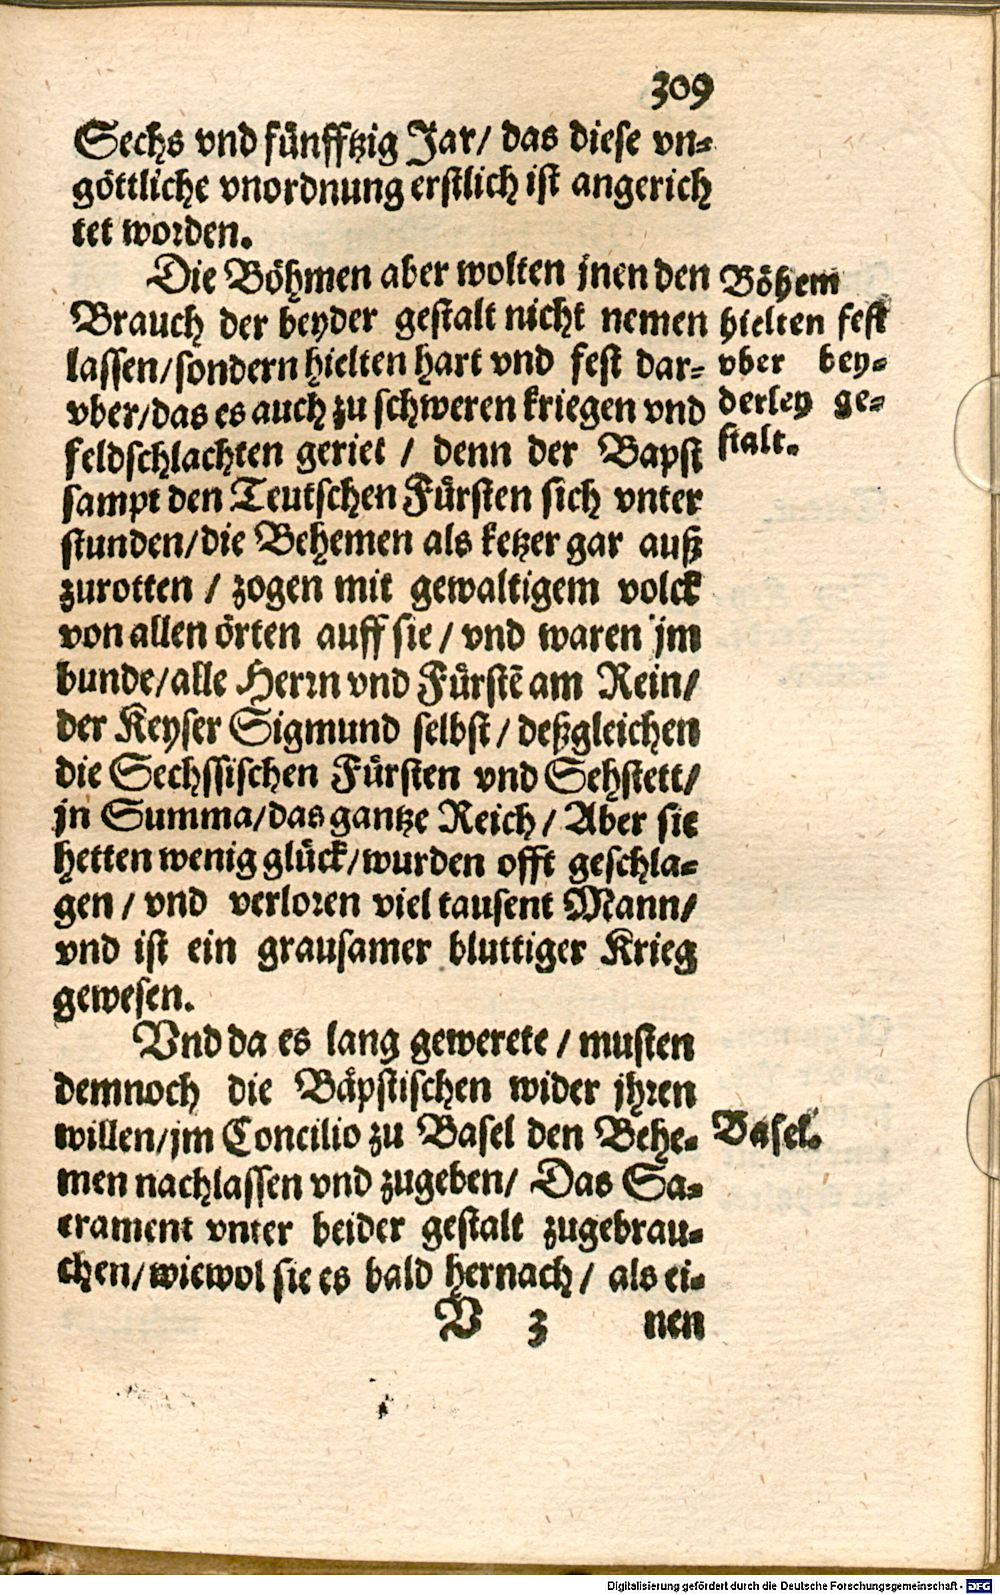 309
Sechs vnd fünfftzig Jar/ das diese vn-
göttliche vnordnung erstlich ist angerich
tet worden.
Die Böhmen aber wolten jnen den
Brauch der beyder gestalt nicht nemen
lassen/sondern hielten hart vnd fest dar-
vber/das es auch zu schweren kriegen vnd
feldschlachten geriet / denn der Bapst
sampt den Teutschen Fürsten sich vnter
stunden/die Behemen als ketzer gar auß
zurotten / zogen mit gewaltigem volck
von allen örten auff sie / vnd waren jm
bunde/alle Herrn vnd Fürstē am Rein/
der Keyser Sigmund selbst/ deßgleichen
die Sechssischen Fürsten vnd Sehstett/
jn Summa/das gantze Reich/ Aber sie
hetten wenig glück/wurden offt geschla-
gen / vnd verloren viel tausent Mann/
vnd ist ein grausamer bluttiger Krieg
gewesen.
Vnd da es lang gewerete / musten
demnoch die Bäpstischen wider jhren
willen/jm Concilio zu Basel den Behe-
men nachlassen vnd zugeben/ Das Sa-
crament vnter beider gestalt zugebrau-
chen/wiewol sie es bald hernach/ als ei-
V 3 nen
Böhem
hielten fest
vber bey-
derley ge-
stalt.
Basel.
Digitalisierung gefördert durch die Deutsche Forschungsgemeinschaft - DFG